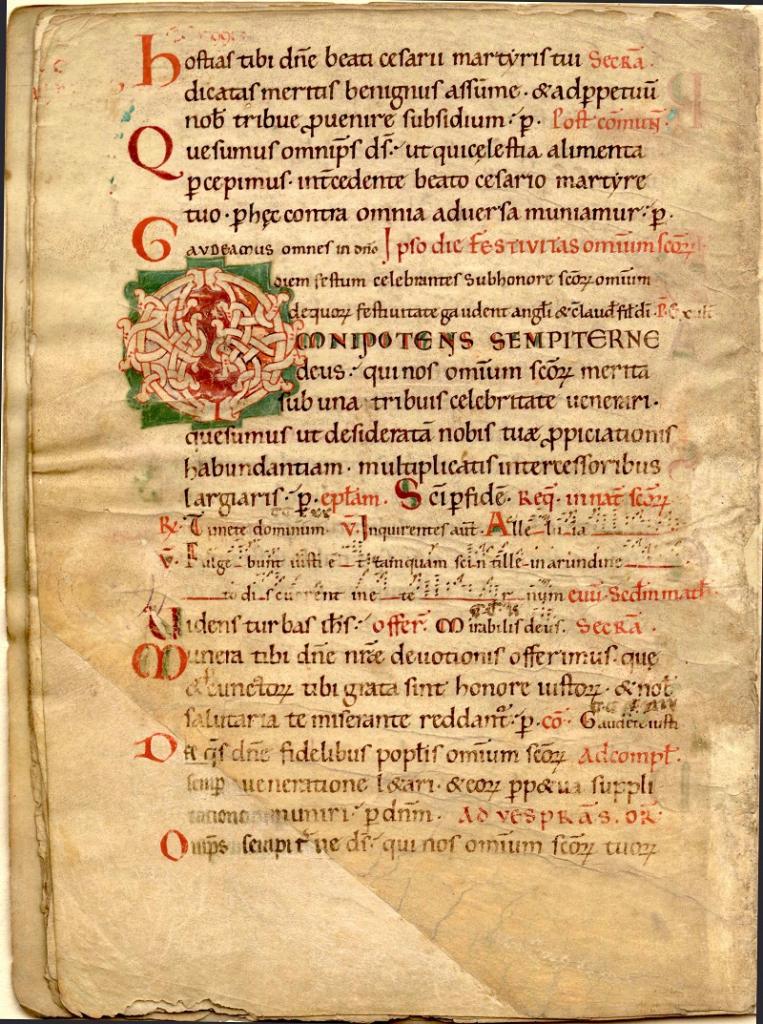 hostias tibi dn̄e beati cesarii martẏris tui Secr̄a.
dicatas meritis benignus assūme. &adp̱petuū
nob̄ tribue ꝓuenire subsidium. p̱. Post comun̄.
Quesumus omnip̄s d̄s. ut qui cęlestia alimenta
p̱cepimus. int̄cedente beato cesario martẏre
tuo. p̱hęc contra omnia aduersa muniamur. p̱.
GAVDEAMUS omnes in dn̄o Ipso die FESTIVITAS omīum sc̄oꝝ
diem festum celebrantes sub honore sc̄oꝝ omīum
dequoꝝ festiuitate gaudent angl̄i &c̄laud̄ fil̄ d̄i.
OMNIPOTENS SEMPITERNE
deus. qui nos omīum sc̄oꝝ merita
sub una tribuis celebritate uenerari.
quesumus ut desideratā nobis tuæ ꝓpiciationis
habundantiam. multiplicatis intercessoribus
largiaris. p̱. ep̄lam. Sc̄i p̱ fidē. Req̄. in nat̄ sc̄oꝝ
R̄. Timete dominum. V. Inquirentes aūt. Alle lu ia
V. Fulge bunt iusti e t tamquam scin tille in arundine
to di scurrent in e te r num euū. Sedm math̄.
Videns turbas ih̄s. offer̄. Mirabilis deus. Secr̄a.
Munera tibi dn̄e nr̄æ deuotionis offerimus. quę
&cunctoꝝ tibi grata sint honore iustoꝝ. &nob̄
salutaria te miserante reddant̄. p̱. cō. Gaudete iusti
Da q̄s dn̄e fidelibus popl̄is omīum sc̄oꝝ Adcompl̄.
semp̱ ueneratione l&ari. &eoꝝ p̱p&ua suppli
catione muniri. p̱ dn̄m. AD VESPR̄AS. OR̄.
Omip̄s sempit̄ne d̄s. qui nos omīum sc̄oꝝ tuoꝝ